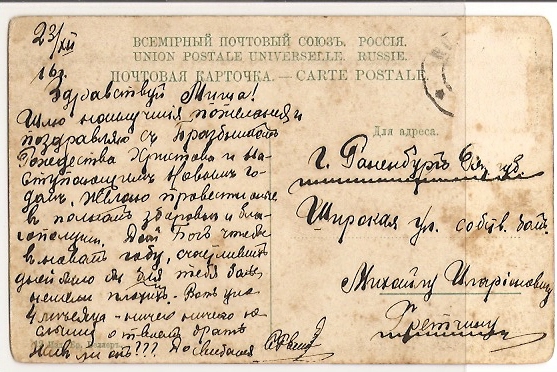 23/XII
16 г.
ВСЕМІРНЫЙ ПОЧТОВЫЙ СОЮЗЪ. РОССІЯ.
UNION POSTALE UNIVERSELLE. RUSSIE.
ПОЧТОВАЯ КАРТОЧКА. — CARTE POSTALE.
Здравствуй Миша!
Шлю наилучшія пожеланія и
поздравляю съ Праздникомъ
Рождества Христова и на-
ступающимъ Новымъ го-
домъ. Желаю провести
в полномъ здоровьи и бла-
гополучіи. Дай Богъ чтобы
в новомъ году, счастливыхъ
дней было для тебя
Вотъ уже
4 мѣсяца ничего ничего не
слышно о твоемъ братѣ
Живъ ли онъ??? До свиданія
Для адреса.
г. Раненбургъ Ряз. губ
Ширская ул. собств. домъ
Михаилу Иларіоновичу